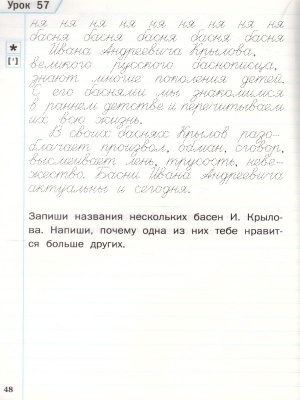 Урок 57
ня ня ня ня ня ня ня ня ня
басня басня басня басня басня
* Ивана Андреевича Крылова,
['] великого русского баснописца,
знают многие поколения детей.
С его баснями мы знакомимся
в раннем детстве и перечитываем
их всю жизнь.
В своих баснях Крылов разо-
блачает произвол, обман, сговор,
высмеивает лень, трусость, неве-
жество. Басни Ивана Андреевича
актуальны и сегодня.
Запиши названия нескольких басен И. Крыло-
ва. Напиши, почему одна из них тебе нравит-
ся больше других.
48